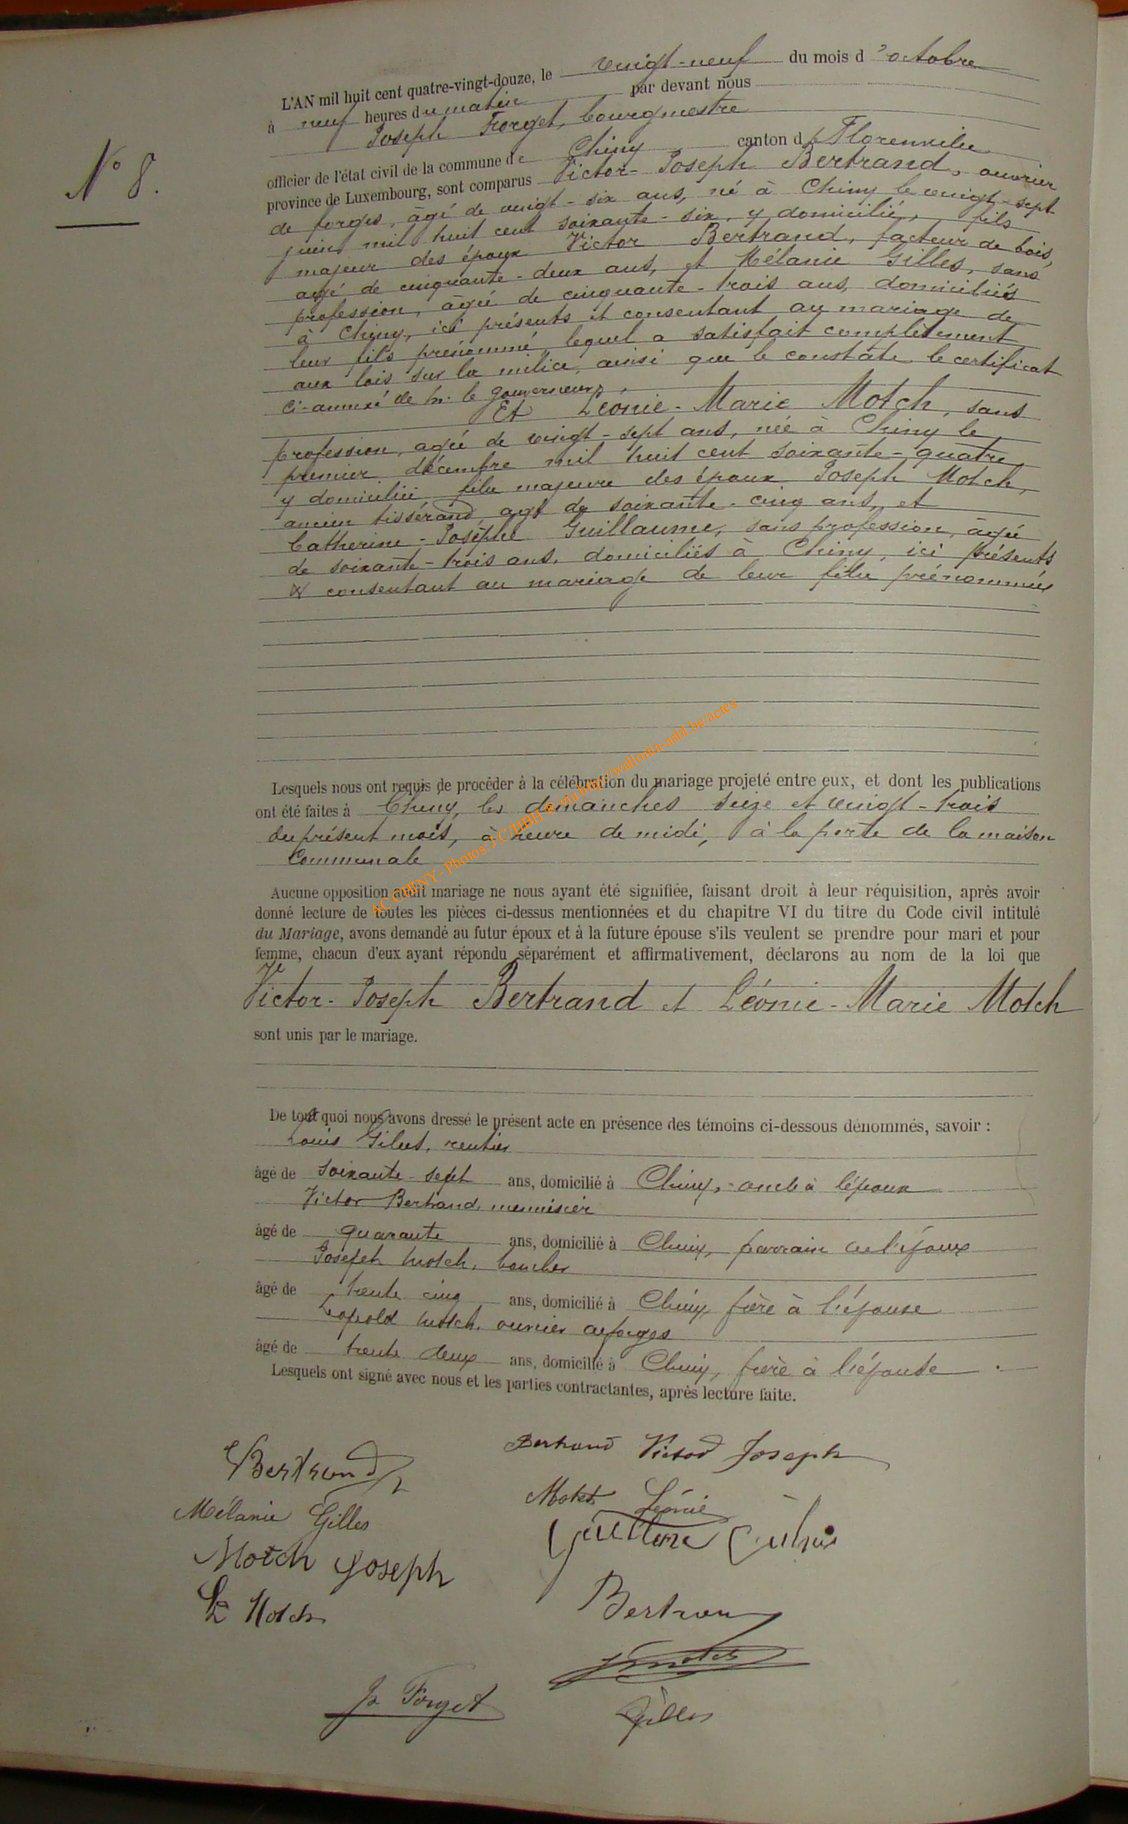 N° 8.
L'AN mil huit cent quatre-vingt-douze, le vingt-neuf du mois d'octobre
à neuf heures du matin par devant nous
Joseph Forget, bourgmestre
officier de l'état civil de la commune de Chiny canton de Florenville
province de Luxembourg, sont comparus Victor-Joseph Bertrand, ouvrier
de forges, âgé de vingt-six ans, né à Chiny le vingt-sept
juin mil huit cent soixante-six, y domicilié, fils
majeur des époux Victor Bertrand, facteur de bois,
agé de cinquante-deux ans, et Mélanie Gilles, sans
profession, âgée de cinquante-trois ans, domiciliés
à Chiny, ici présents et consentant au mariage de
leur fils prénommé, lequel a satisfait complètement
aux lois sur la milice, ainsi que le constate le certificat
ci-annexé de Mr. le gouverneur.
Et Léonie-Marie Motch, sans
profession, agée de vingt-sept ans, née à Chiny le
premier décembre mil huit cent soixante-quatre
y domiciliée fille majeure des époux Joseph Motch,
ancien tisserand agé de soixante-cinq ans, et
Catherine-Josèphe Guillaume, sans profession, agée
de soixante-trois ans, domiciliés à Chiny, ici présents
& consentant au mariage de leur fille prénommée
Lesquels nous ont requis de procéder à la célébration du mariage projeté entre eux, et dont les publications
ont été faites à Chiny, les dimanches seize et vingt-trois
du présent mois, à heure de midi, à la porte de la maison
Communale
Aucune opposition audit mariage ne nous ayant été signifiée, faisant droit à leur réquisition, après avoir
donné lecture de toutes les pièces ci-dessus mentionnées et du chapitre VI du titre du Code civil intitulé
du Mariage, avons demandé au futur époux et à la future épouse s'ils veulent se prendre pour mari et pour
femme, chacun d'eux ayant répondu séparément et affirmativement, déclarons au nom de la loi que
Victor-Joseph Bertrand et Léonie-Marie Motch
sont unis par le mariage.
De tout quoi nous avons dressé le présent acte en présence des témoins ci-dessous dénommés, savoir :
Louis Gilles, rentier
âgé de soixante-sept ans, domicilié à Chiny, oncle à l'époux
Victor Bertrand, menuisier
âgé de quarante ans, domicilié à Chiny, parrain de l'époux
Joseph Motch, boucher
âgé de trente cinq ans, domicilié à Chiny, frère à l'épouse
Léopold Motch, ouvrier de forges
âgé de trente deux ans, domicilié à Chiny, frère à l'épouse
Lesquels ont signé avec nous et les parties contractantes, après lecture faite.
Bertrand Bertrand Victor Joseph
Mélanie Gilles Motch Léonie
Motch Joseph
L Motch Bertrand
J Motch
Js Forget Gilles
AC CHINY - Photos